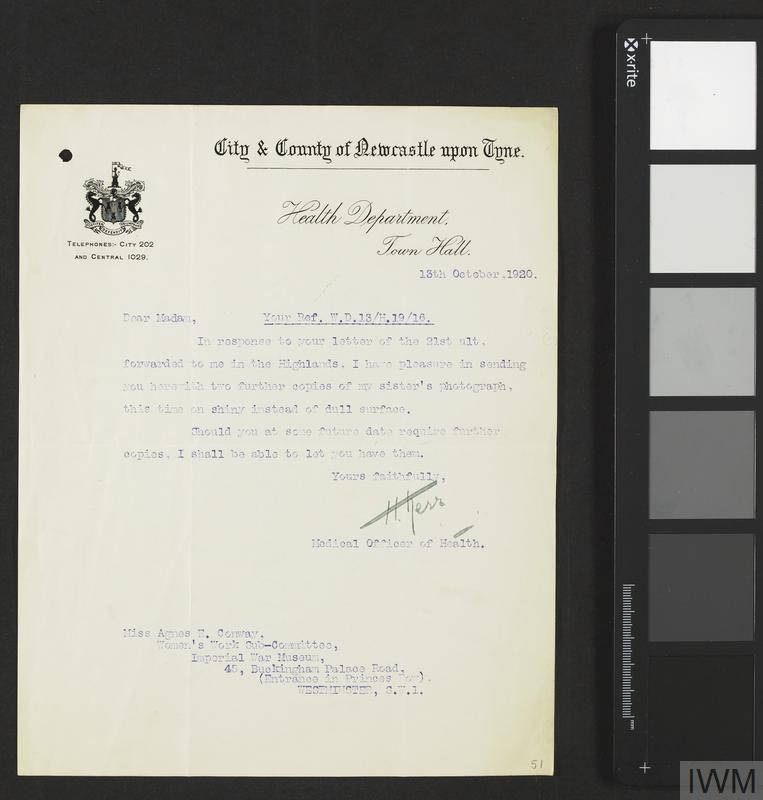 City & County of Newcastle upon Tyne.
Health Department,
Town Hall.
TELEPHONES:- CITY 202
AND CENTRAL 1029.
13th October, 1920.
Dear Madam,
Your Ref. W.D.13/H.19/16.
In response to your letter of the 21st ult.
forwarded to me in the Highlands, I have pleasure in sending
you herewith two further copies of my sister's photograph,
this time on shiny instead of dull surface.
Should you at some future date require further
copies, I shall be able to let you have them.
Yours faithfully,
H. Kerr
Medical Officer of Health.
Miss Agnes E. Conway,
Women's Work Sub-Committee,
Imperial War Museum,
45, Buckingham Palace Road,
(Entrance in Princes Row).
WESTMINSTER, S.W.1.
51
x-rite
mm
IWM